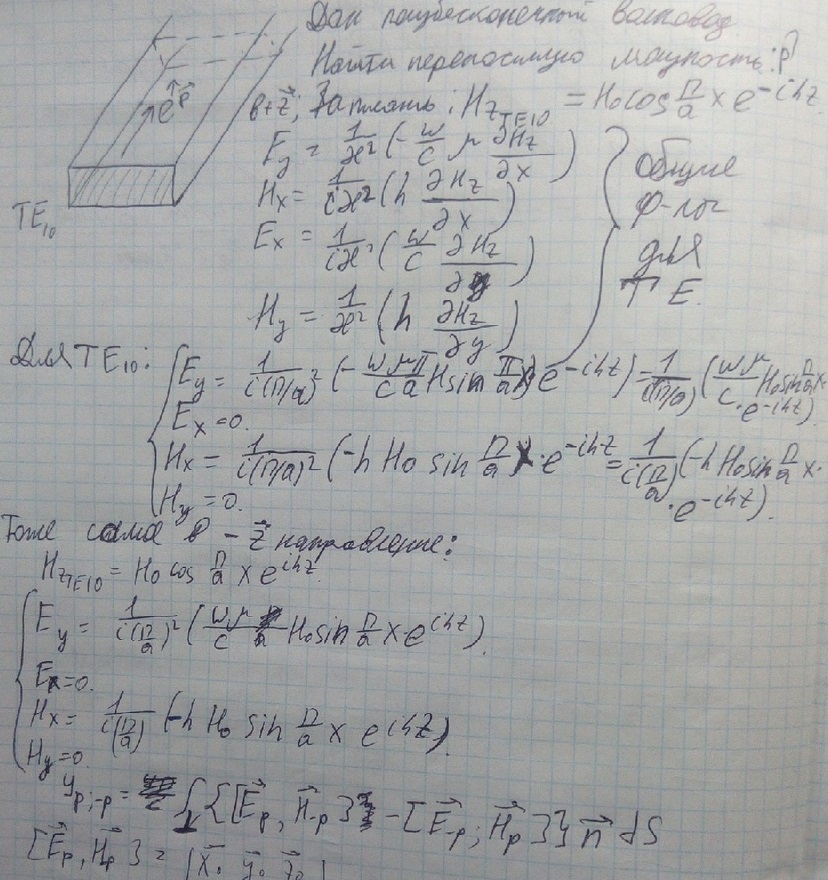 Дан полубесконечный волновод.
Найти переносимую мощность: P
в +z⃗; Записать: H_{z TE10} = H₀ cos π/a x e^{-ihz}
E_y = 1/(iæ²) (-ω/c μ ∂H_z/∂x)
H_x = 1/(iæ²) (h ∂H_z/∂x)
E_x = 1/(iæ²) (ω/c ∂H_z/∂y)
H_y = 1/æ² (h ∂H_z/∂y)
общие
ф-лы
для
TE.
e^{p⃗}
TE₁₀
Для TE₁₀:
E_y = 1/(i(π/a)²) (-ωμπ/(c a) H sin π/a x) e^{-ihz}) = 1/(i(π/a)) (ωμ/c H₀ sin π/a x · e^{-ihz})
E_x = 0.
H_x = 1/(i(π/a)²) (-h H₀ sin π/a x · e^{-ihz} = 1/(i(π/a)) (-h H₀ sin π/a x · e^{-ihz}).
H_y = 0.
Тоже самое в -z⃗ направление:
H_{z TE10} = H₀ cos π/a x e^{ihz}
E_y = 1/(i(π/a)²) (ωμ/c H₀ sin π/a x e^{ihz})
E_x = 0.
H_x = 1/(i(π/a)) (-h H₀ sin π/a x e^{ihz}).
H_y = 0.
y_{p;-p} = ∫ {[E⃗_p, H⃗_{-p}] - [E⃗_{-p}; H⃗_p]} n⃗ dS
[E⃗_p, H⃗_p] = | x⃗₀ y⃗₀ z⃗₀ |